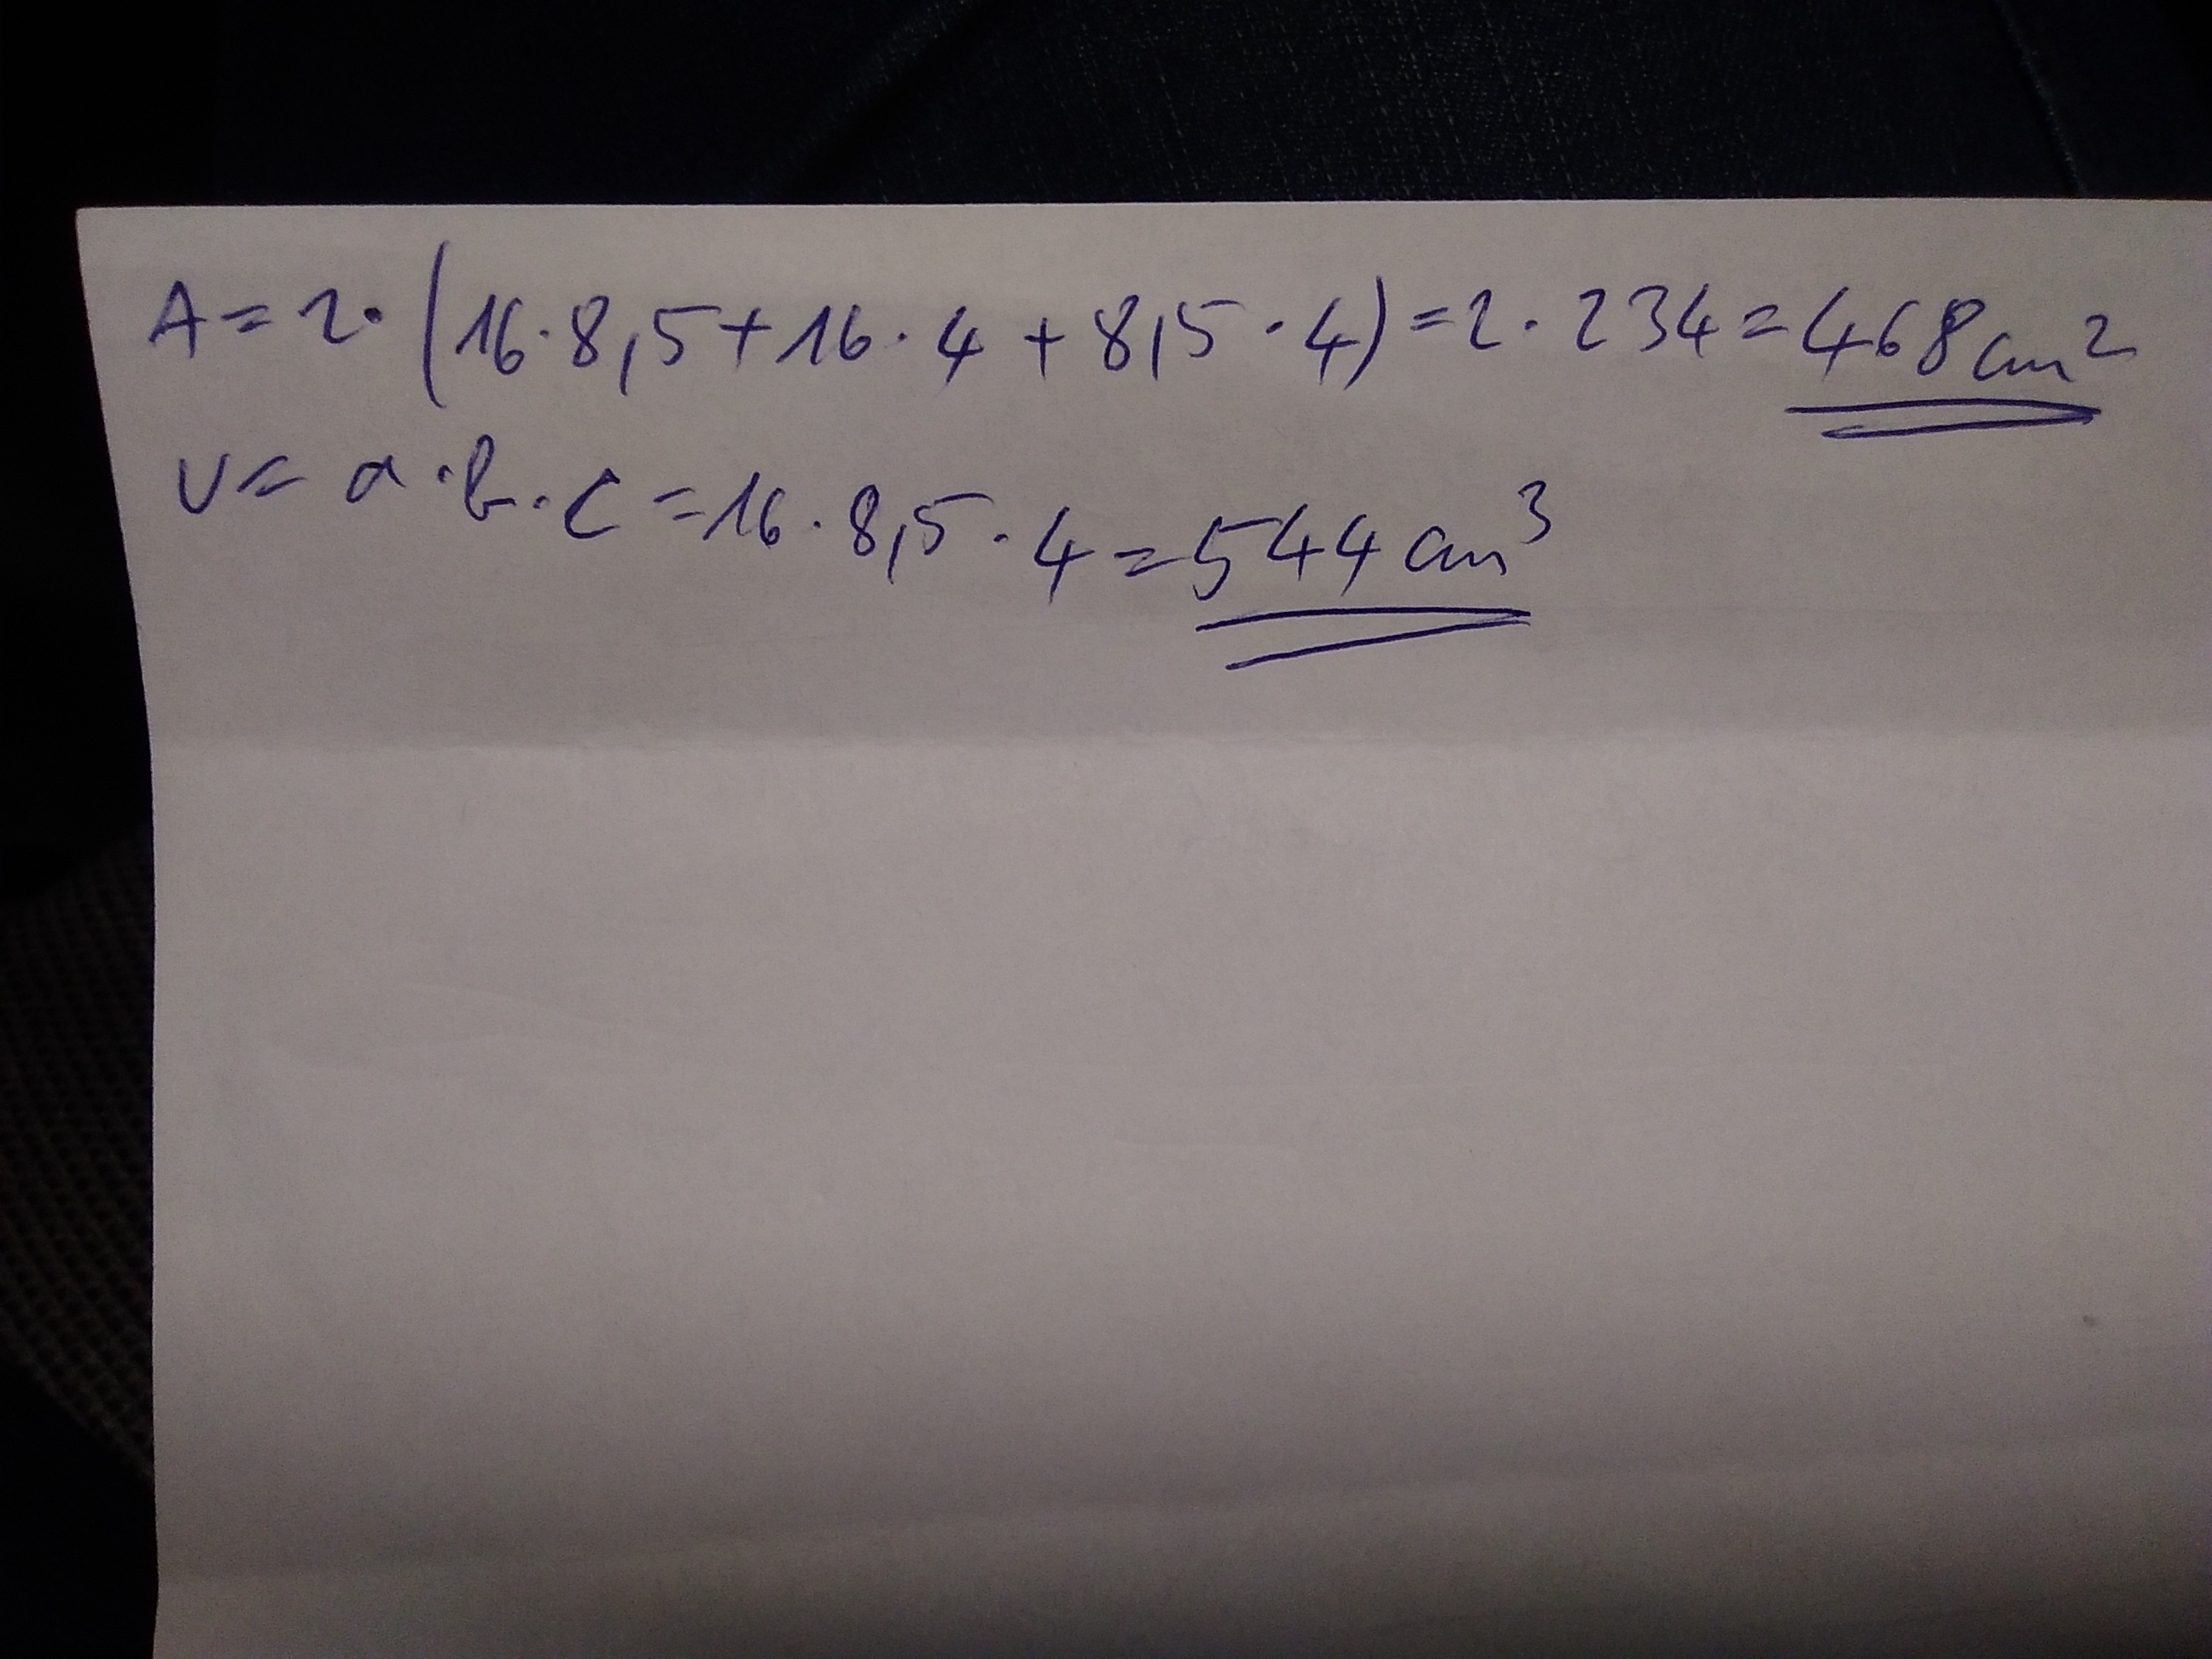 A = 2 · (16 · 8,5 + 16 · 4 + 8,5 · 4) = 2 · 234 = 468 cm²
V = a · b · c = 16 · 8,5 · 4 = 544 cm³